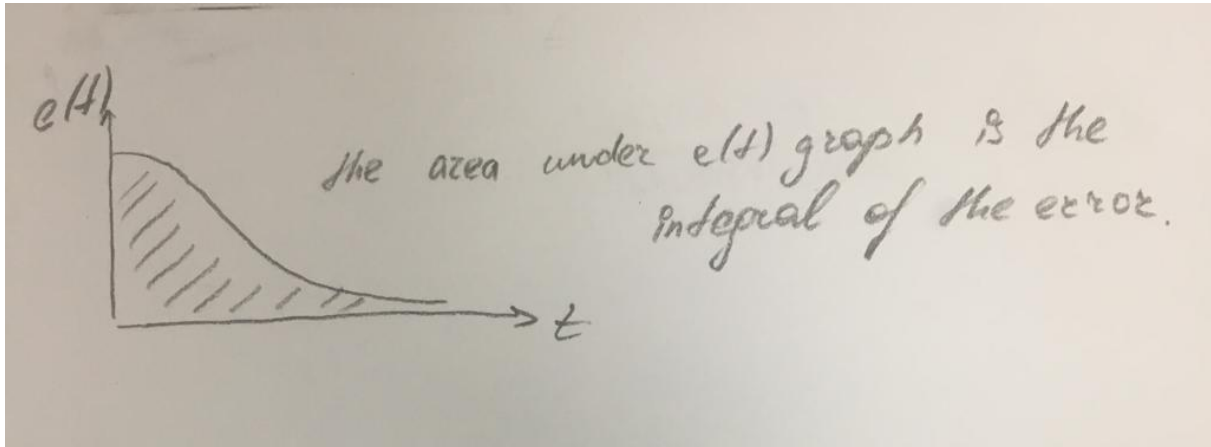 e(t)
the area under e(t) graph is the
integral of the error.
t